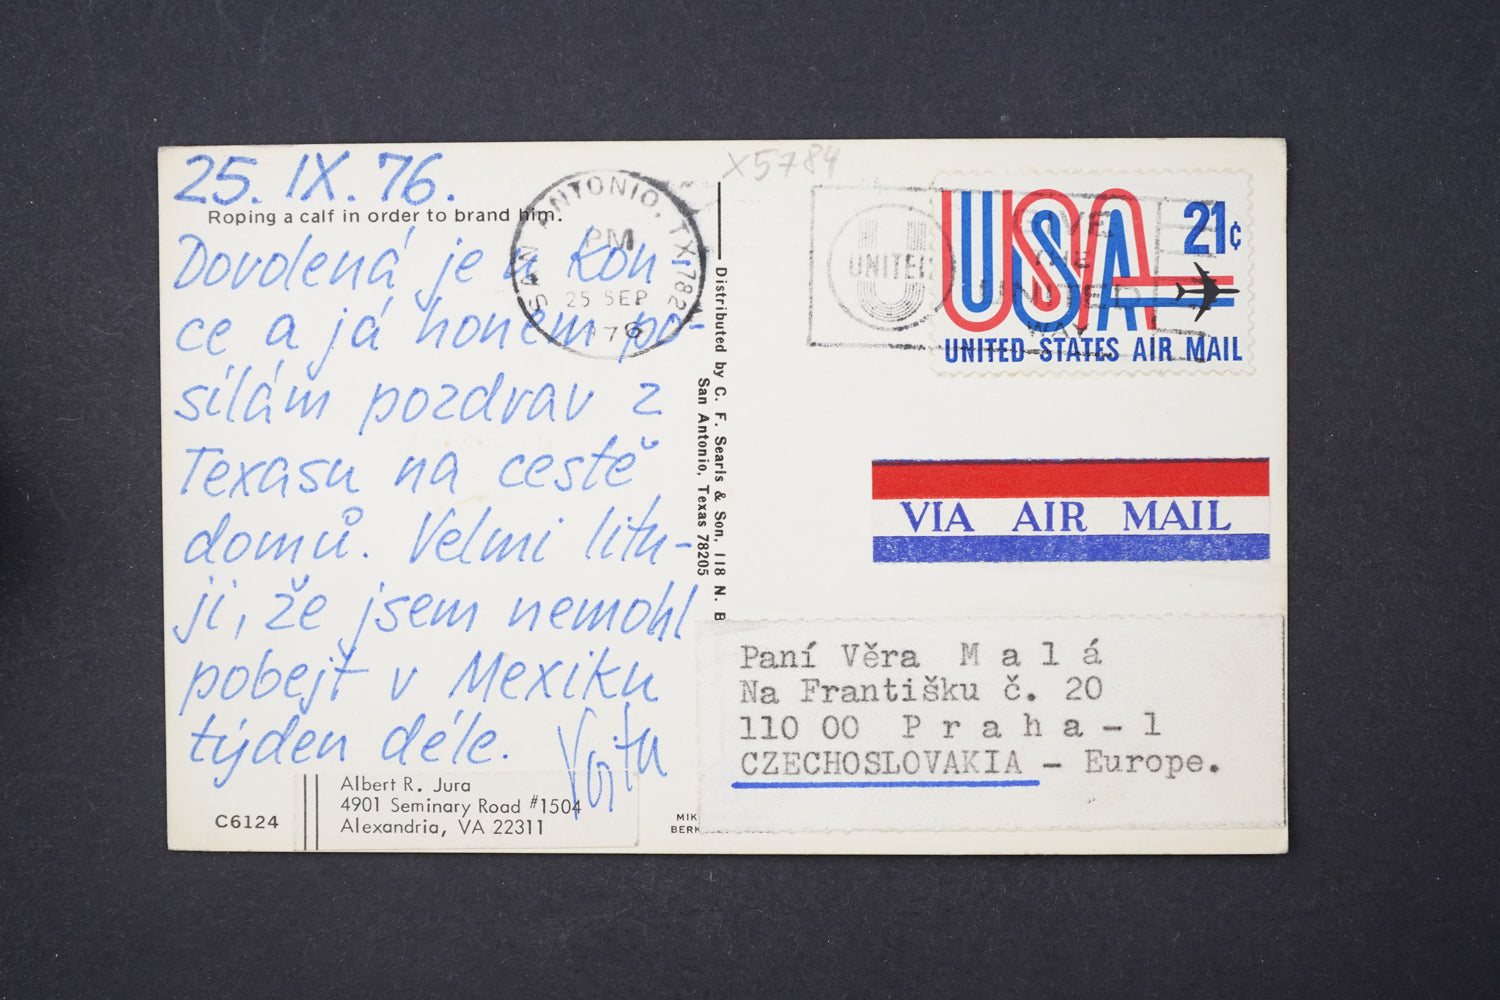 25. IX. 76.
Roping a calf in order to brand him.
Dovolená je u kon
ce a já honem po-
sílám pozdrav z
Texasu na cestě
domů. Velmi litu-
ji, že jsem nemohl
pobejt v Mexiku
týden déle. Vojta
Albert R. Jura
4901 Seminary Road #1504
Alexandria, VA 22311
C6124
MIK
BERK
SAN ANTONIO, TX 782
PM
25 SEP
1976
Distributed by C. F. Searls & Son, 118 N. B
San Antonio, Texas 78205
X5784
UNITED
GIVE
THE
UNITED
WAY
USA
21¢
UNITED STATES AIR MAIL
VIA AIR MAIL
Paní Věra M a l á
Na Františku č. 20
110 00 P r a h a - 1
CZECHOSLOVAKIA - Europe.